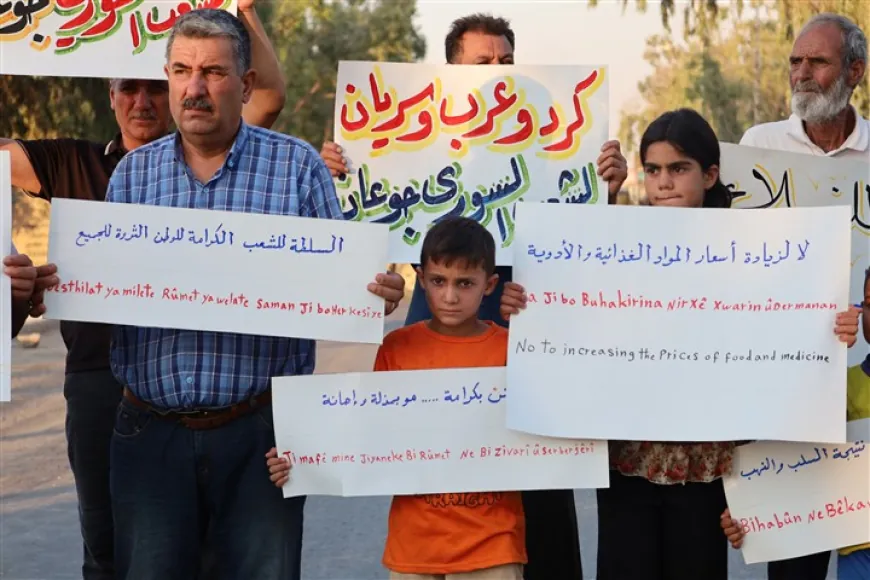 كرد و عرب و سريان
الشعب السوري جوعان
السلطة للشعب الكرامة للوطن الثروة للجميع
Desthilat ya miletê Rûmet ya welate Saman Ji bo Her kesiye
لا لزيادة أسعار المواد الغذائية والأدوية
Na Ji bo Buhakirina Nirxê xwarin û Dermanan
No to increasing the Prices of food and medicine
بكرامة ..... مو بمذلة وإهانة
Ji mafê mine Jiyaneke Bi Rûmet Ne Bi zivarî û Serberjêrî
نتيجة السلب والنهب
Bi habûn Ne Bêkar